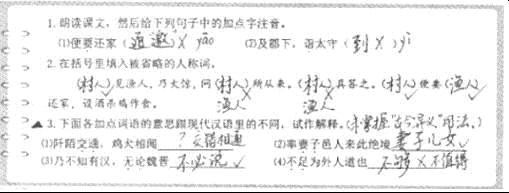 1. 朗读课文，然后给下列句子中的加点字注音。
(1)便要还家（通邀）X yāo (2)及郡下，诣太守（到X）yì
2. 在括号里填入被省略的人称词。
（村人）见渔人，乃大惊，问（村人）所从来。（村人）具答之。（村人）便要（渔人）
还家，设酒杀鸡作食。 渔人 渔人
▲3. 下面各加点词语的意思跟现代汉语里的不同，试作解释。（未掌握"古今异义"用法。）
(1)阡陌交通，鸡犬相闻 ？交错相通 (2)率妻子邑人来此绝境 妻子儿女
(3)乃不知有汉，无论魏晋 不必说 (4)不足为外人道也 不够 X 不值得